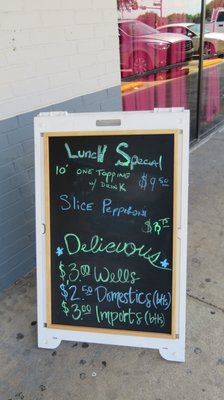 Lunch Special
10" ONE TOPPING
w/ DRINK $9.50
SLICE PEPPERONI
Delicious
$3.00 Wells
$2.50 Domestics (btls)
$3.00 Imports (btls)